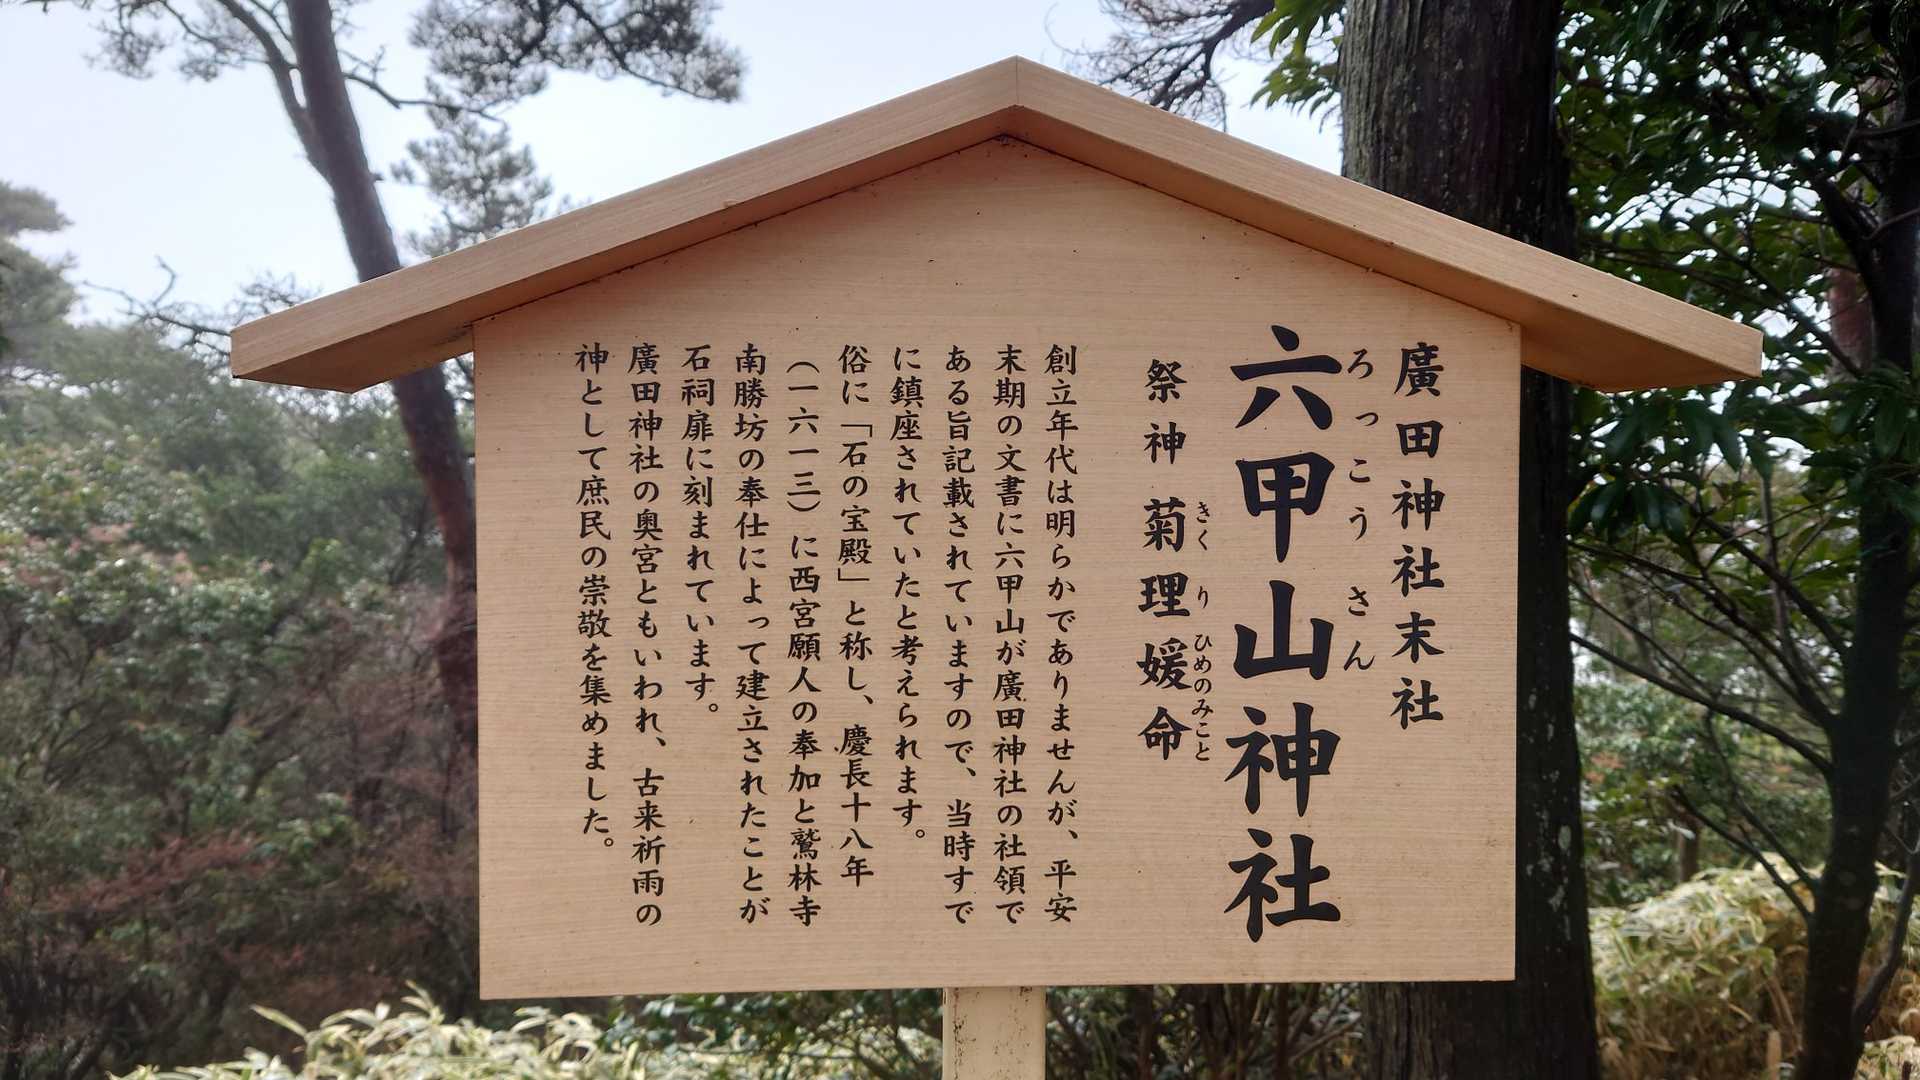 廣田神社末社
ろっこうさん
六甲山神社
きくりひめのみこと
祭神 菊理媛命
創立年代は明らかでありませんが、平安
末期の文書に六甲山が廣田神社の社領で
ある旨記載されていますので、当時すで
に鎮座されていたと考えられます。
俗に「石の宝殿」と称し、慶長十八年
（一六一三）に西宮願人の奉加と鷲林寺
南勝坊の奉仕によって建立されたことが
石祠扉に刻まれています。
廣田神社の奥宮ともいわれ、古来祈雨の
神として庶民の崇敬を集めました。